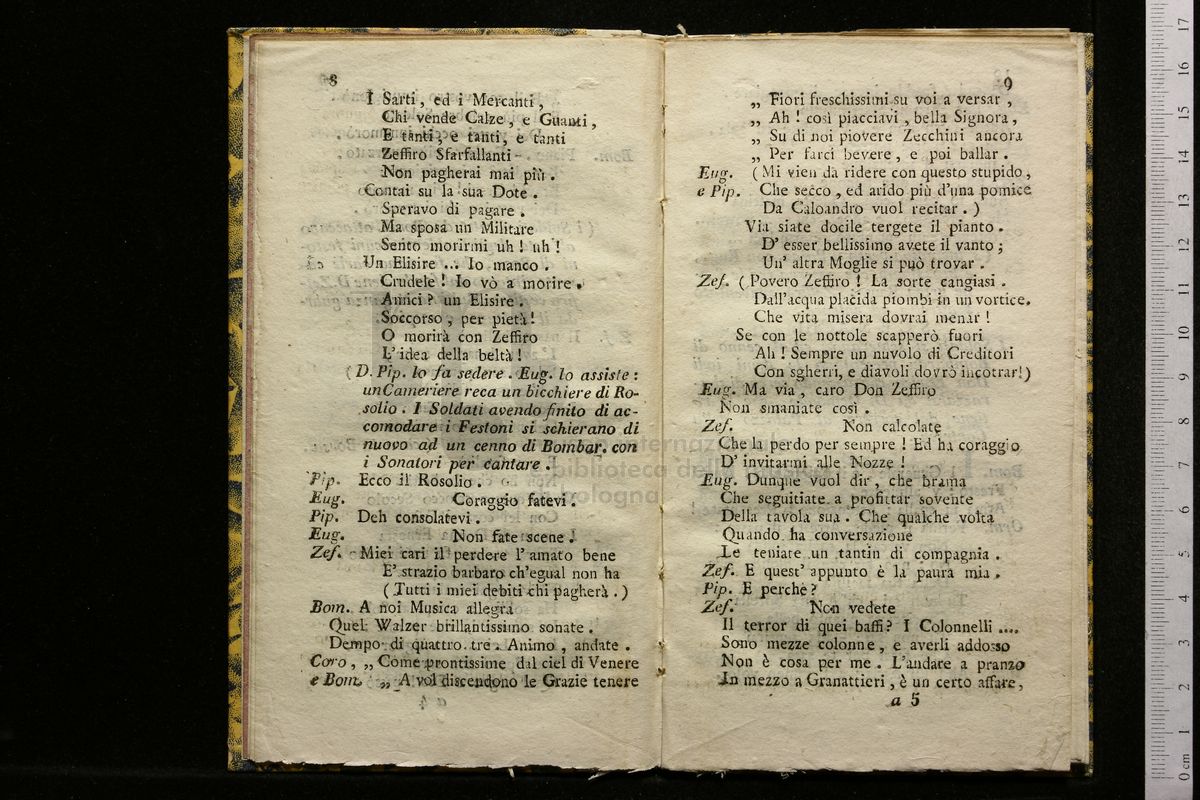 8
I Sarti, ed i Mercanti,
Chi vende Calze, e Guanti,
E tanti, e tanti, e tanti
Zeffiro Sfarfallanti
Non pagherai mai più.
Contai su la sua Dote.
Speravo di pagare.
Ma sposa un Militare
Sento morirmi uh! uh!
Un Elisire ... Io manco.
Crudele! Io vò a morire.
Amici? un Elisire.
Soccorso, per pietà!
O morirà con Zeffiro
L'idea della beltà!
(D. Pip. lo fa sedere. Eug. lo assiste:
un Cameriere reca un bicchiere di Ro-
solio. I Soldati avendo finito di ac-
comodare i Festoni si schierano di
nuovo ad un cenno di Bombar. con
i Sonatori per cantare.
Pip. Ecco il Rosolio.
Eug. Coraggio fatevi.
Pip. Deh consolatevi.
Eug. Non fate scene.
Zef. Miei cari il perdere l'amato bene
E' strazio barbaro ch'egual non ha
(Tutti i miei debiti chi pagherà.)
Bom. A noi Musica allegra
Quel Walzer brillantissimo sonate.
Dempo di quattro tre. Animo, andate.
Coro, „ Come prontissime dal ciel di Venere
e Bom. „ A vol discendono le Grazie tenere
a 4
9
„ Fiori freschissimi su voi a versar,
„ Ah! così piacciavi, bella Signora,
„ Su di noi piovere Zecchini ancora
„ Per farci bevere, e poi ballar.
Eug. (Mi vien da ridere con questo stupido,
e Pip. Che secco, ed arido più d'una pomice
Da Caloandro vuol recitar.)
Via siate docile tergete il pianto.
D'esser bellissimo avete il vanto;
Un' altra Moglie si può trovar.
Zef. (Povero Zeffiro! La sorte cangiasi.
Dall'acqua placida piombi in un vortice.
Che vita misera dovrai menar!
Se con le nottole scapperò fuori
Ah! Sempre un nuvolo di Creditori
Con sgherri, e diavoli dovrò incotrar!)
Eug. Ma via, caro Don Zeffiro
Non smaniate così.
Zef. Non calcolate
Che la perdo per sempre! Ed ha coraggio
D'invitarmi alle Nozze!
Eug. Dunque vuol dir, che brama
Che seguitiate a profittar sovente
Della tavola sua. Che qualche volta
Quando ha conversazione
Le teniate un tantin di compagnia.
Zef. E quest' appunto è la paura mia.
Pip. E perchè?
Zef. Non vedete
Il terror di quei baffi? I Colonnelli ....
Sono mezze colonne, e averli addosso
Non è cosa per me. L'andare a pranzo
In mezzo a Granattieri, è un certo affare,
a 5